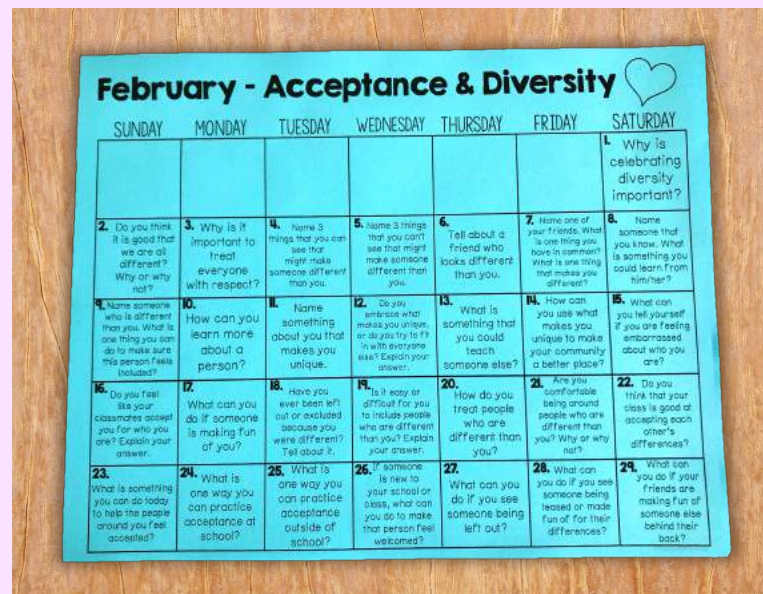 February - Acceptance & Diversity
SUNDAY MONDAY TUESDAY WEDNESDAY THURSDAY FRIDAY SATURDAY
1. Why is
celebrating
diversity
important?
2. Do you think
it is good that
we are all
different?
Why or why
not?
3. Why is it
important to
treat
everyone
with respect?
4. Name 3
things that you can
see that
might make
someone different
than you.
5. Name 3 things
that you can't
see that might
make someone
different than
you.
6.
Tell about a
friend who
looks different
than you.
7. Name one of
your friends. What
is one thing you
have in common?
What is one thing
that makes you
different?
8. Name
someone that
you know. What
is something you
could learn from
him/her?
9. Name someone
who is different
than you. What is
one thing you can
do to make sure
this person feels
included?
10.
How can you
learn more
about a
person?
11. Name
something
about you that
makes you
unique.
12. Do you
embrace what
makes you unique,
or do you try to fit
in with everyone
else? Explain your
answer.
13. What is
something that
you could
teach
someone else?
14. How can
you use what
makes you
unique to make
your community
a better place?
15. What can
you tell yourself
if you are feeling
embarrassed
about who you
are?
16. Do you feel
like your
classmates accept
you for who you
are? Explain your
answer.
17.
What can you
do if someone
is making fun
of you?
18. Have you
ever been left
out or excluded
because you
were different?
Tell about it.
19. Is it easy or
difficult for you
to include people
who are different
than you? Explain
your answer.
20.
How do you
treat people
who are
different than
you?
21. Are you
comfortable
being around
people who are
different than
you? Why or why
not?
22. Do you
think that your
class is good at
accepting each
other's
differences?
23.
What is something
you can do today
to help the people
around you feel
accepted?
24. What is
one way you
can practice
acceptance at
school?
25. What is
one way you
can practice
acceptance
outside of
school?
26. If someone
is new to
your school or
class, what can
you do to make
that person feel
welcomed?
27.
What can you
do if you see
someone being
left out?
28. What can
you do if you see
someone being
teased or made
fun of for their
differences?
29. What can
you do if your
friends are
making fun of
someone else
behind their
back?